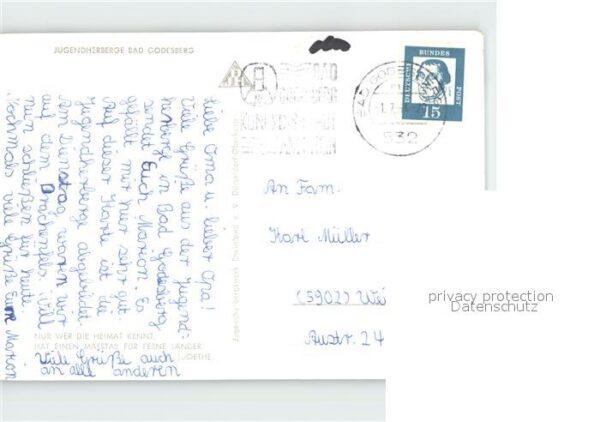 JUGENDHERBERGE BAD GODESBERG
Liebe Oma u. lieber Opa!
Viele Grüße aus der Jugend-
herberge in Bad Godesberg
sendet Euch Marion. Es
gefällt mir hier sehr gut
Auf dieser Karte ist die
Jugendherberge abgebildet.
Am Dienstag waren wir
auf dem Drachenfels. Will
nun schließen für heute
Nochmals viele Grüße Eure Marion
Viele Grüße auch
an alle anderen
NUR WER DIE HEIMAT KENNT,
HAT EINEN MASSTAB FÜR FERNE LÄNDER
GOETHE
DEUTSCHE
BUNDES
POST
15
BAD GODESBERG
532
An Fam.
Karl Müller
(5902) Wei
Austr. 24
privacy protection
Datenschutz